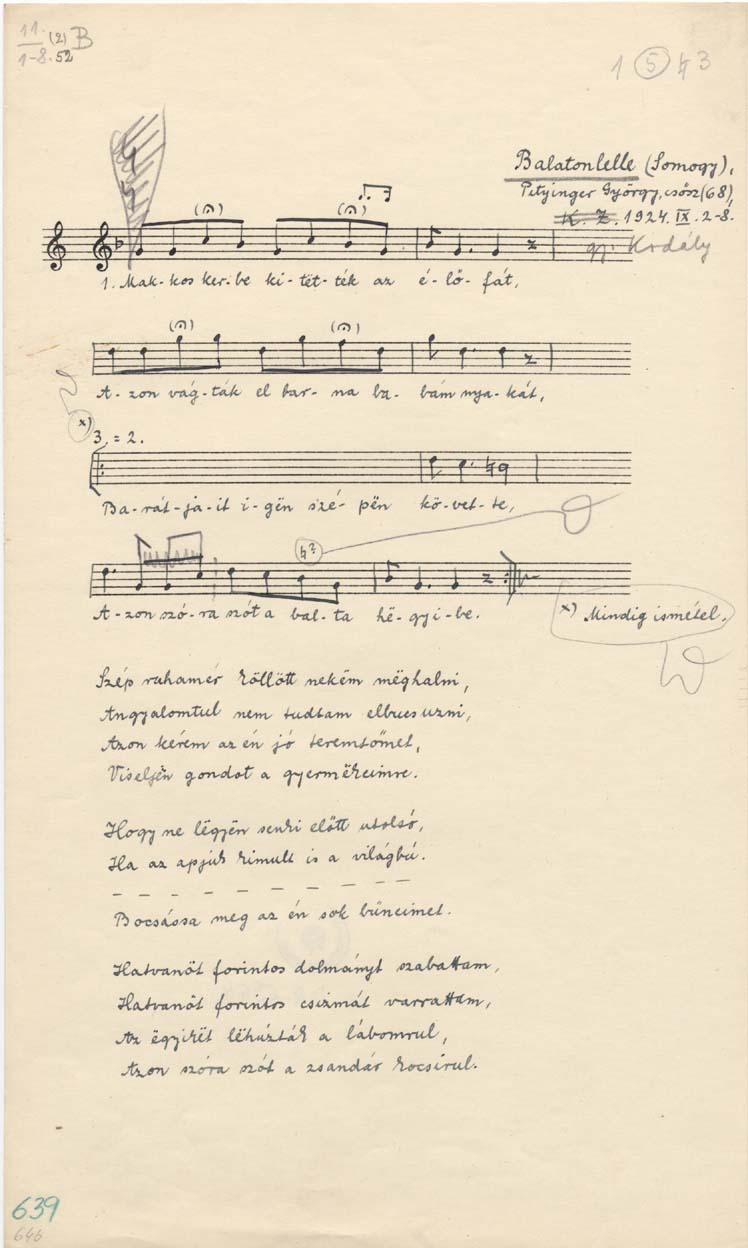 11. (2) B
1-8. 52
1 5 ♮ 3
Balatonlelle (Somogy),
Petyinger György, csősz (68),
K. Z. 1924. IX. 2-8.
gy. Király
1. Mak-kos ker-be ki-tët-ték az é-lő-fát,
A-zon vág-ták el bar-na ba-bám nya-kát,
x)
3. = 2.
Ba-rát-ja-it i-gën szé-pën kö-vet-te,
♮?
A-zon szó-ra szót a bal-ta hë-gyi-be.
x) Mindig ismétel.
Szép ruhamér köllött nekëm mëghalni,
Angyalomtul nem tudtam elbucsuzni,
Azon kérëm az én jó teremtőmet,
Viseljën gondot a gyermëkeimre.
Hogy ne lëgyën senki előtt utolsó,
Ha az apjuk kimult is a világbú.
Bocsássa meg az én sok bűneimet.
Hatvanöt forintos dolmányt szabattam,
Hatvanöt forintos csizmát varrattam,
Az ëgyikët lëhúzták a lábomrul,
Azon szóra szót a zsandár kocsirul.
639
646